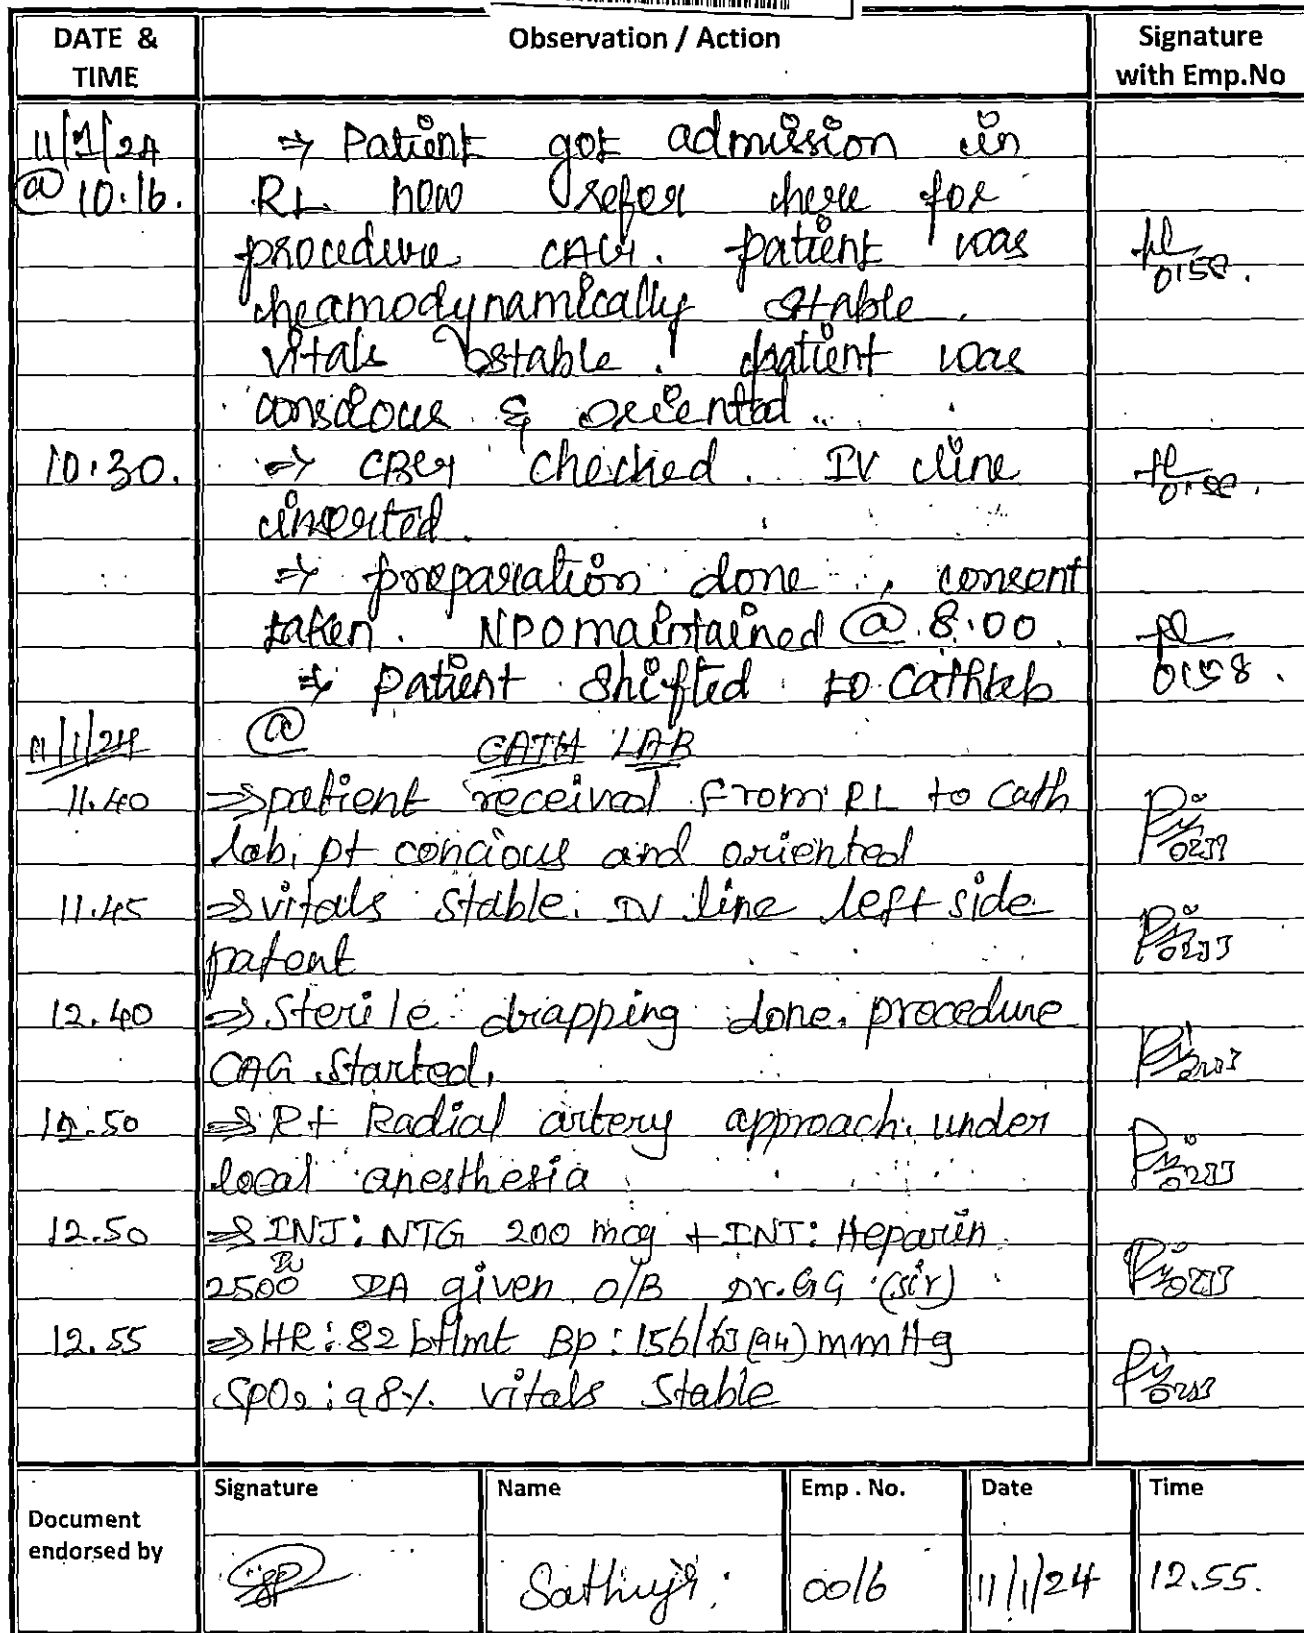 DATE & TIME Observation / Action Signature with Emp.No
11/1/24 ⇒ Patient got admission in
@ 10:16. RL now refer here for
procedure CAG. patient was
heamodynamically stable. 0158.
vitals stable. patient was
conscious & oriented.
10:30. ⇒ CBG checked. IV line 0158.
inserted.
⇒ preparation done, consent
taken. NPO maintained @ 8:00.
⇒ patient shifted to cathlab 0158.
11/1/24 @ CATH LAB
11.40 ⇒ patient received from RL to cath
lab, pt concious and oriented 0233
11.45 ⇒ vitals stable. IV line left side
patent 0233
12.40 ⇒ Sterile drapping done. procedure
CAG started. 0233
12.50 ⇒ Rt Radial artery approach. under
local anesthesia 0233
12.50 ⇒ INJ: NTG 200 mcg + INT: Heparin
2500 IU IA given O/B Dr. GG (sir) 0233
12.55 ⇒ HR: 82 bt/mt BP: 156/63 (94) mmHg
SpO2: 98%. vitals stable 0233
Document endorsed by Signature Name Emp . No. Date Time
0016 11/1/24 12.55.